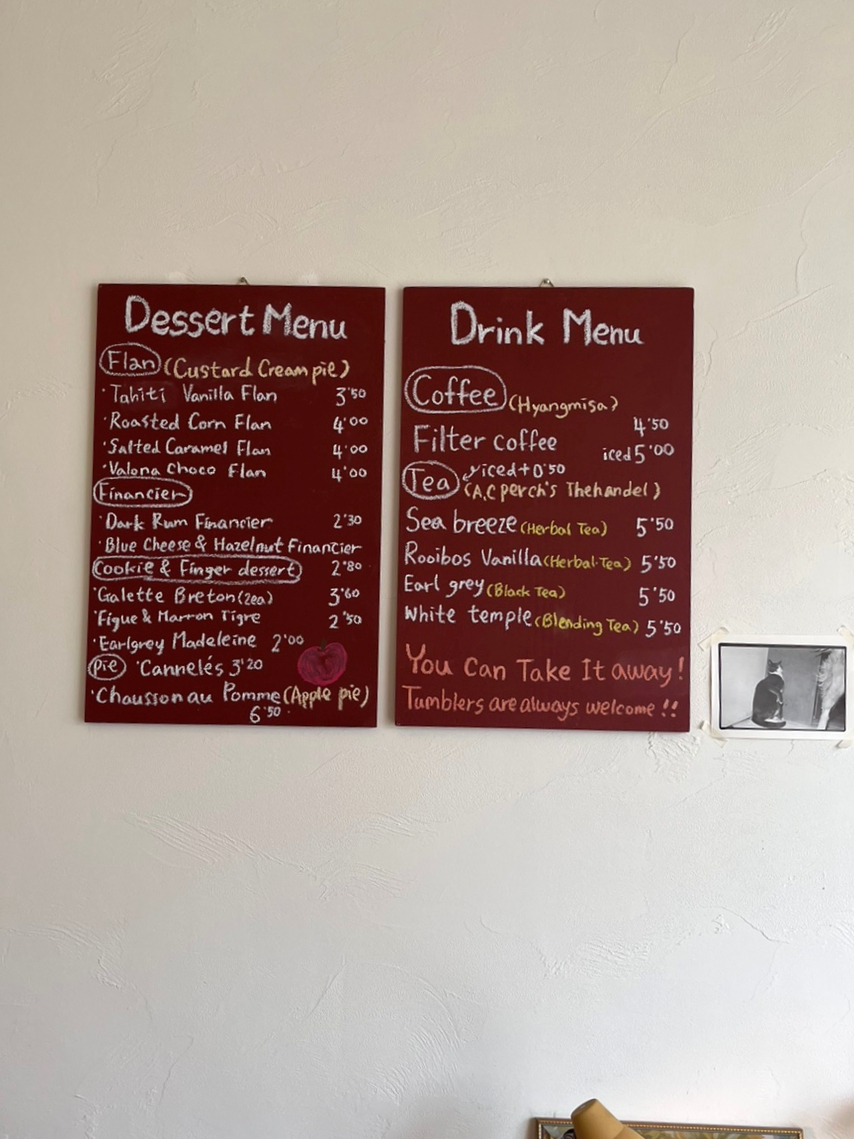 Dessert Menu
Flan (Custard Cream pie)
· Tahiti Vanilla Flan 3'50
· Roasted Corn Flan 4'00
· Salted Caramel Flan 4'00
· Valona Choco Flan 4'00
Financier
· Dark Rum Financier 2'30
· Blue Cheese & Hazelnut Financier
Cookie & Finger dessert 2'80
· Galette Breton (2ea) 3'60
· Figue & Marron Tigre 2'50
· Earlgrey Madeleine 2'00
Pie · Cannelés 3'20
· Chausson au Pomme (Apple pie)
6'50
Drink Menu
Coffee (Hyangmisa)
4'50
Filter coffee iced 5'00
Tea iced + 0'50
(A.C perch's Thehandel)
Sea breeze (Herbal Tea) 5'50
Rooibos Vanilla (Herbal Tea) 5'50
Earl grey (Black Tea) 5'50
White temple (Blending Tea) 5'50
You Can Take It away!
Tumblers are always welcome!!